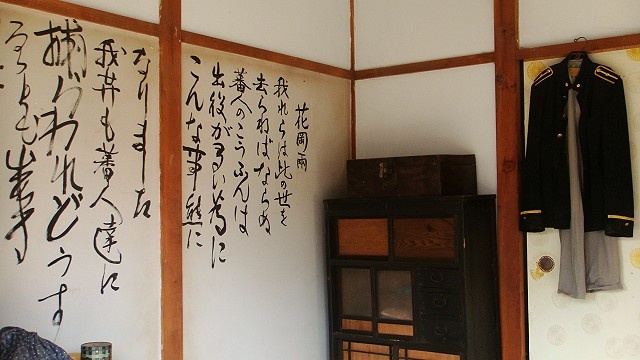 花岡両
我れらは此の世を
去らねばならぬ
蕃人のこうふんは
出役が多い為に
こんな事態に
なりました
我等も蕃人達に
捕らわれどうす
ることも出来ず